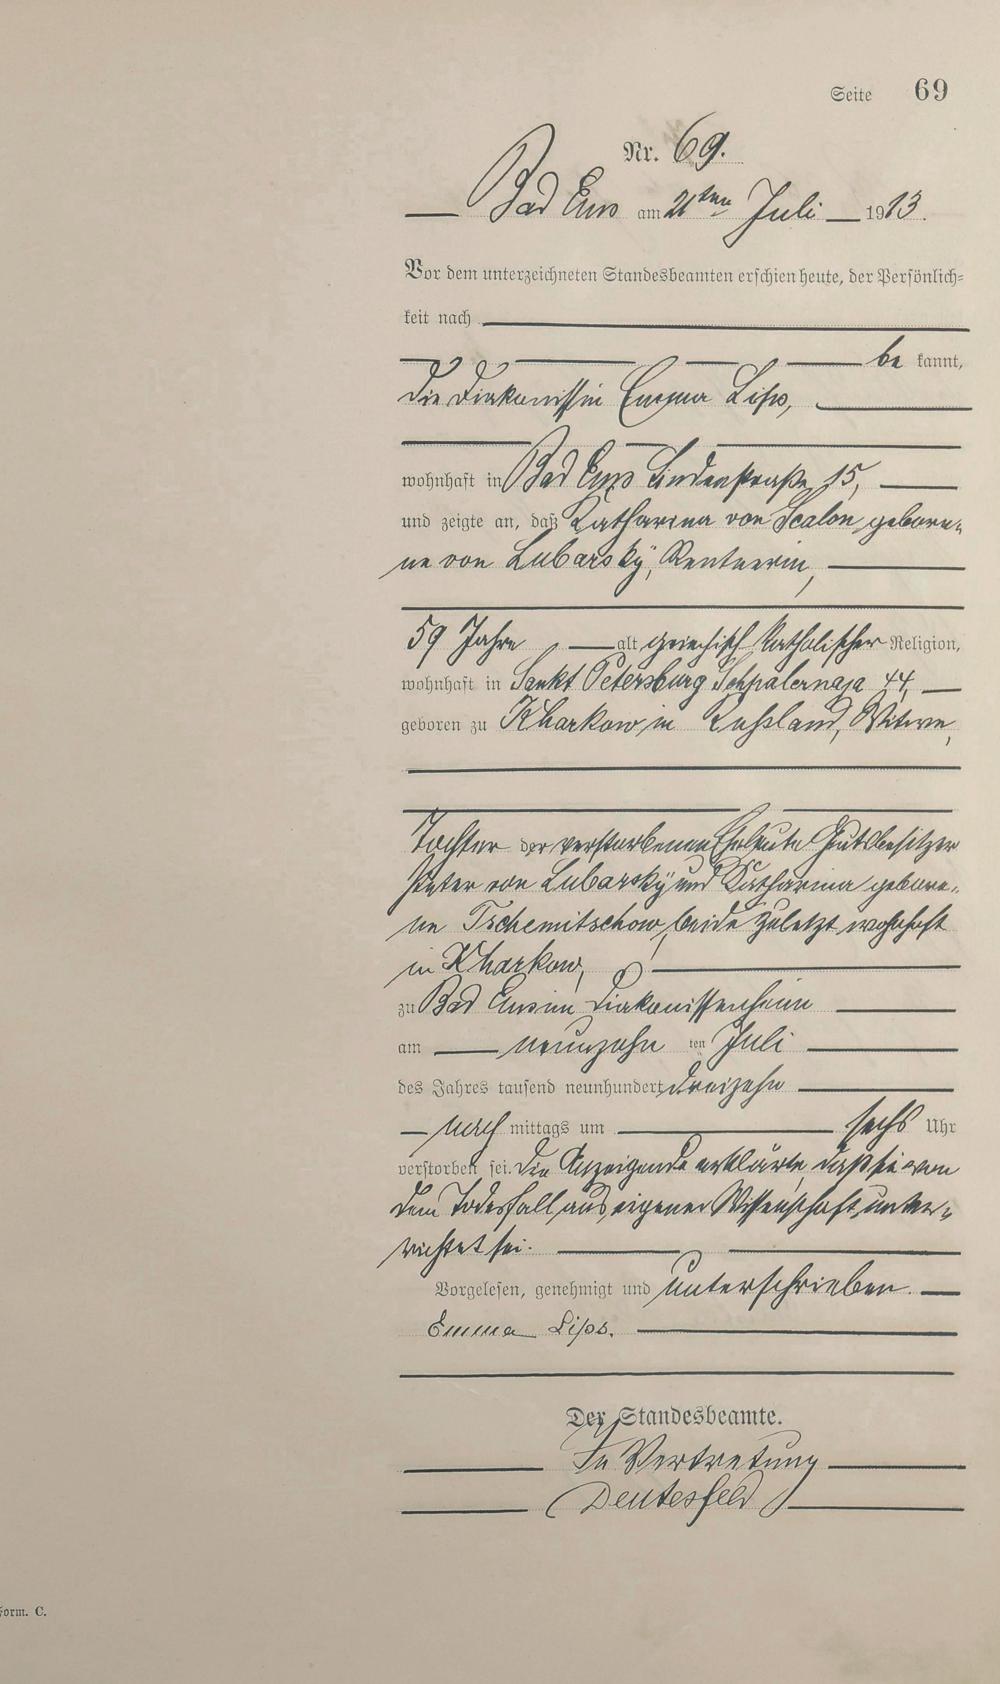 Seite 69
Nr. 69.
Bad Ems am 21ten Juli 1913.
Vor dem unterzeichneten Standesbeamten erschien heute, der Persönlich=
keit nach
be kannt,
die Diakonissin Emma Lips,
wohnhaft in Bad Ems Lindenstraße 15,
und zeigte an, daß Katharina von Scalon, gebore-
ne von Lubarsky, Rentnerin,
59 Jahre alt griechisch katholischer Religion,
wohnhaft in Sankt Petersburg Schpalernaja 44,
geboren zu Kharkow in Russland, Witwe,
Tochter der verstorbenen Eheleute Gutsbesitzer
Peter von Lubarsky und Katharina gebore-
ne Tschemitschow, beide zuletzt wohnhaft
in Kharkow,
zu Bad Ems im Diakonissenheim
am neunzehn ten Juli
des Jahres tausend neunhundert dreizehn
nach mittags um sechs Uhr
verstorben sei. Die Anzeigende erklärte, daß sie von
dem Todesfall aus eigener Wissenschaft unter-
richtet sei.
Vorgelesen, genehmigt und unterschrieben.
Emma Lips.
Der Standesbeamte.
In Vertretung
Form. C.